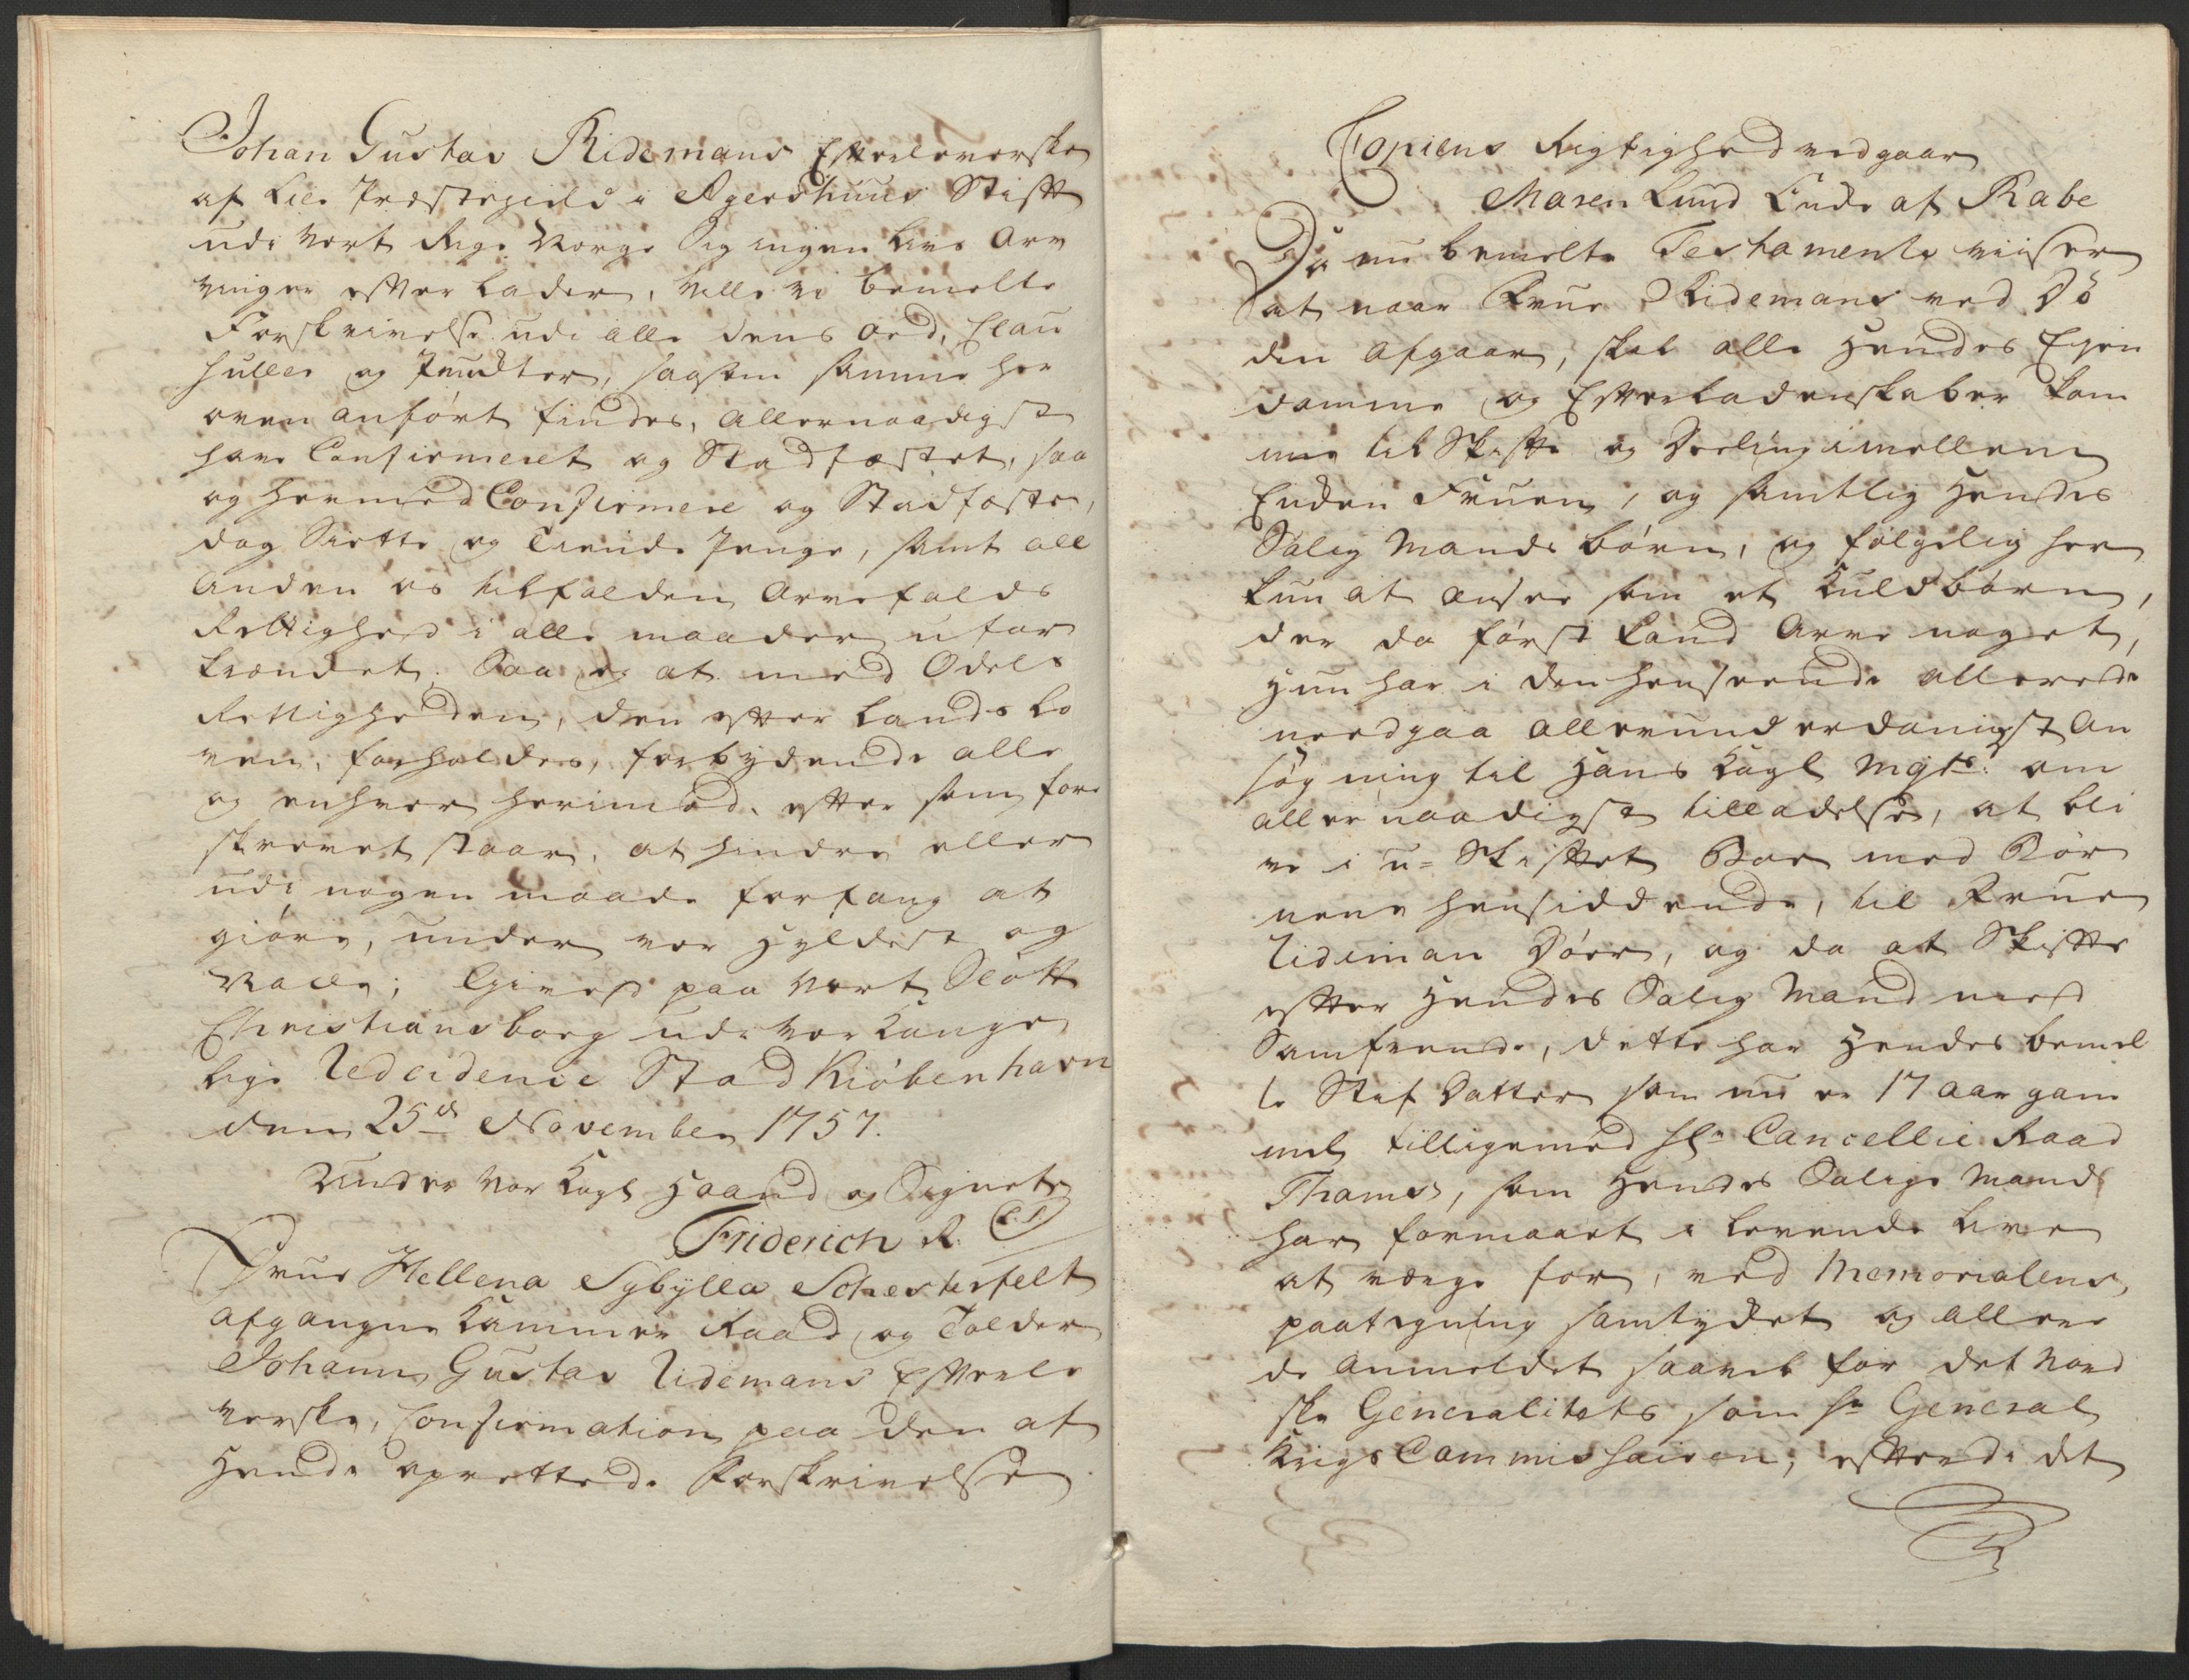 Johan Gustav Ridemans Efterleverske
af Lier Præstegield i Agershuus Stift
udi vort Rige Norge Sig ingen Livs Arv
vinger efter lader, Ville vi bemelte
Forskrivelse udi alle dens ord, Clau
suller og Puncter, saasom samme her
oven anført findes, allernaadigst
have Confirmeret og Stadfæstet, saa
og hermed Confirmere og Stadfæste,
dog Siette og Tiende Penge, samt all
anden os tilfalden Arvefalds
Rettighed i alle maader ufor
krændet. Saa og at med Odels
Rettigheden, den efter Lands Lo
ven, forholdes, forbydende alle
og enhver herimod, efter som fore
skrevet staar, at hindre eller
udi nogen maade forfang at
giøre, under vor Hyldest og
Naade; Givet paa vort Slott
Christiansborg udi vor Konge
lige Redcidence Stad Kiøbenhavn
dend 25de November 1757.
Under vor Kongl Haand og Signete
Friderich R. (L.S.)
Frue Hellena Sybylla Schesterfelt
afgangne Kammer Raad og Tolder
Johann Gustav Ridemans Efterle
verske, Confirmation paa den af
Hende oprettede Forskrivelse
Copiens Rigtighed vedgaar
Maren Lund Enke af Rabe
Da nu bemelte Testamente viiser
at naar Frue Ridemans ved Dö
den afgaar, skal alle Hendes Eyen
domme og Efterladenskaber kom
me til Skifte og Deeling imellem
Enken Fruen, og samtlig Hendes
Salig Mands børn, og følgelig her
kun at ansee som et Kuldbørn,
der da først kand Arve noget,
Hun har i den henseende allerede
indgaa allerunderdanigst An
søgning til Hans Kongl Maytt: om
allernaadigst tilladelse, at bli
ve i u-Skiftet Boe med Bør
nene hensiddende, til Frue
Rideman Döer, og da at Skifte
efter Hendes Salig Mand med
Samfrende, dette har Hendes bemel
te Stif Datter som nu er 17 aar gam
mel tilligemed Hr Cancellie Raad
Thams, som Hendes Salige Mand
har formaaet i levende Live
at værge for, ved Memorialens
paategning samtykket og aller
de anmeldet saavel for det Nord
ske Generalitets som Hr General
Krigs Commissairen; efterdi det